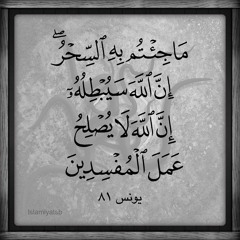 مَا جِئْتُم بِهِ ٱلسِّحْرُ ۖ
إِنَّ ٱللَّهَ سَيُبْطِلُهُۥٓ
إِنَّ ٱللَّهَ لَا يُصْلِحُ
عَمَلَ ٱلْمُفْسِدِينَ
يونس ٨١
Islamiyatub